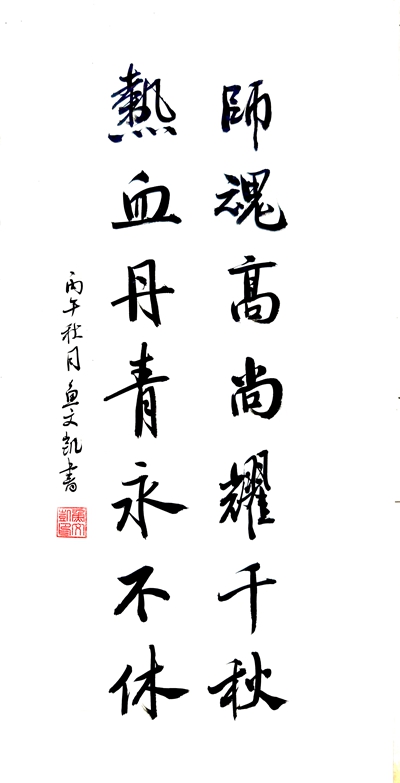 師魂高尚耀千秋
熱血丹青永不休
丙午秋月魚文凱書